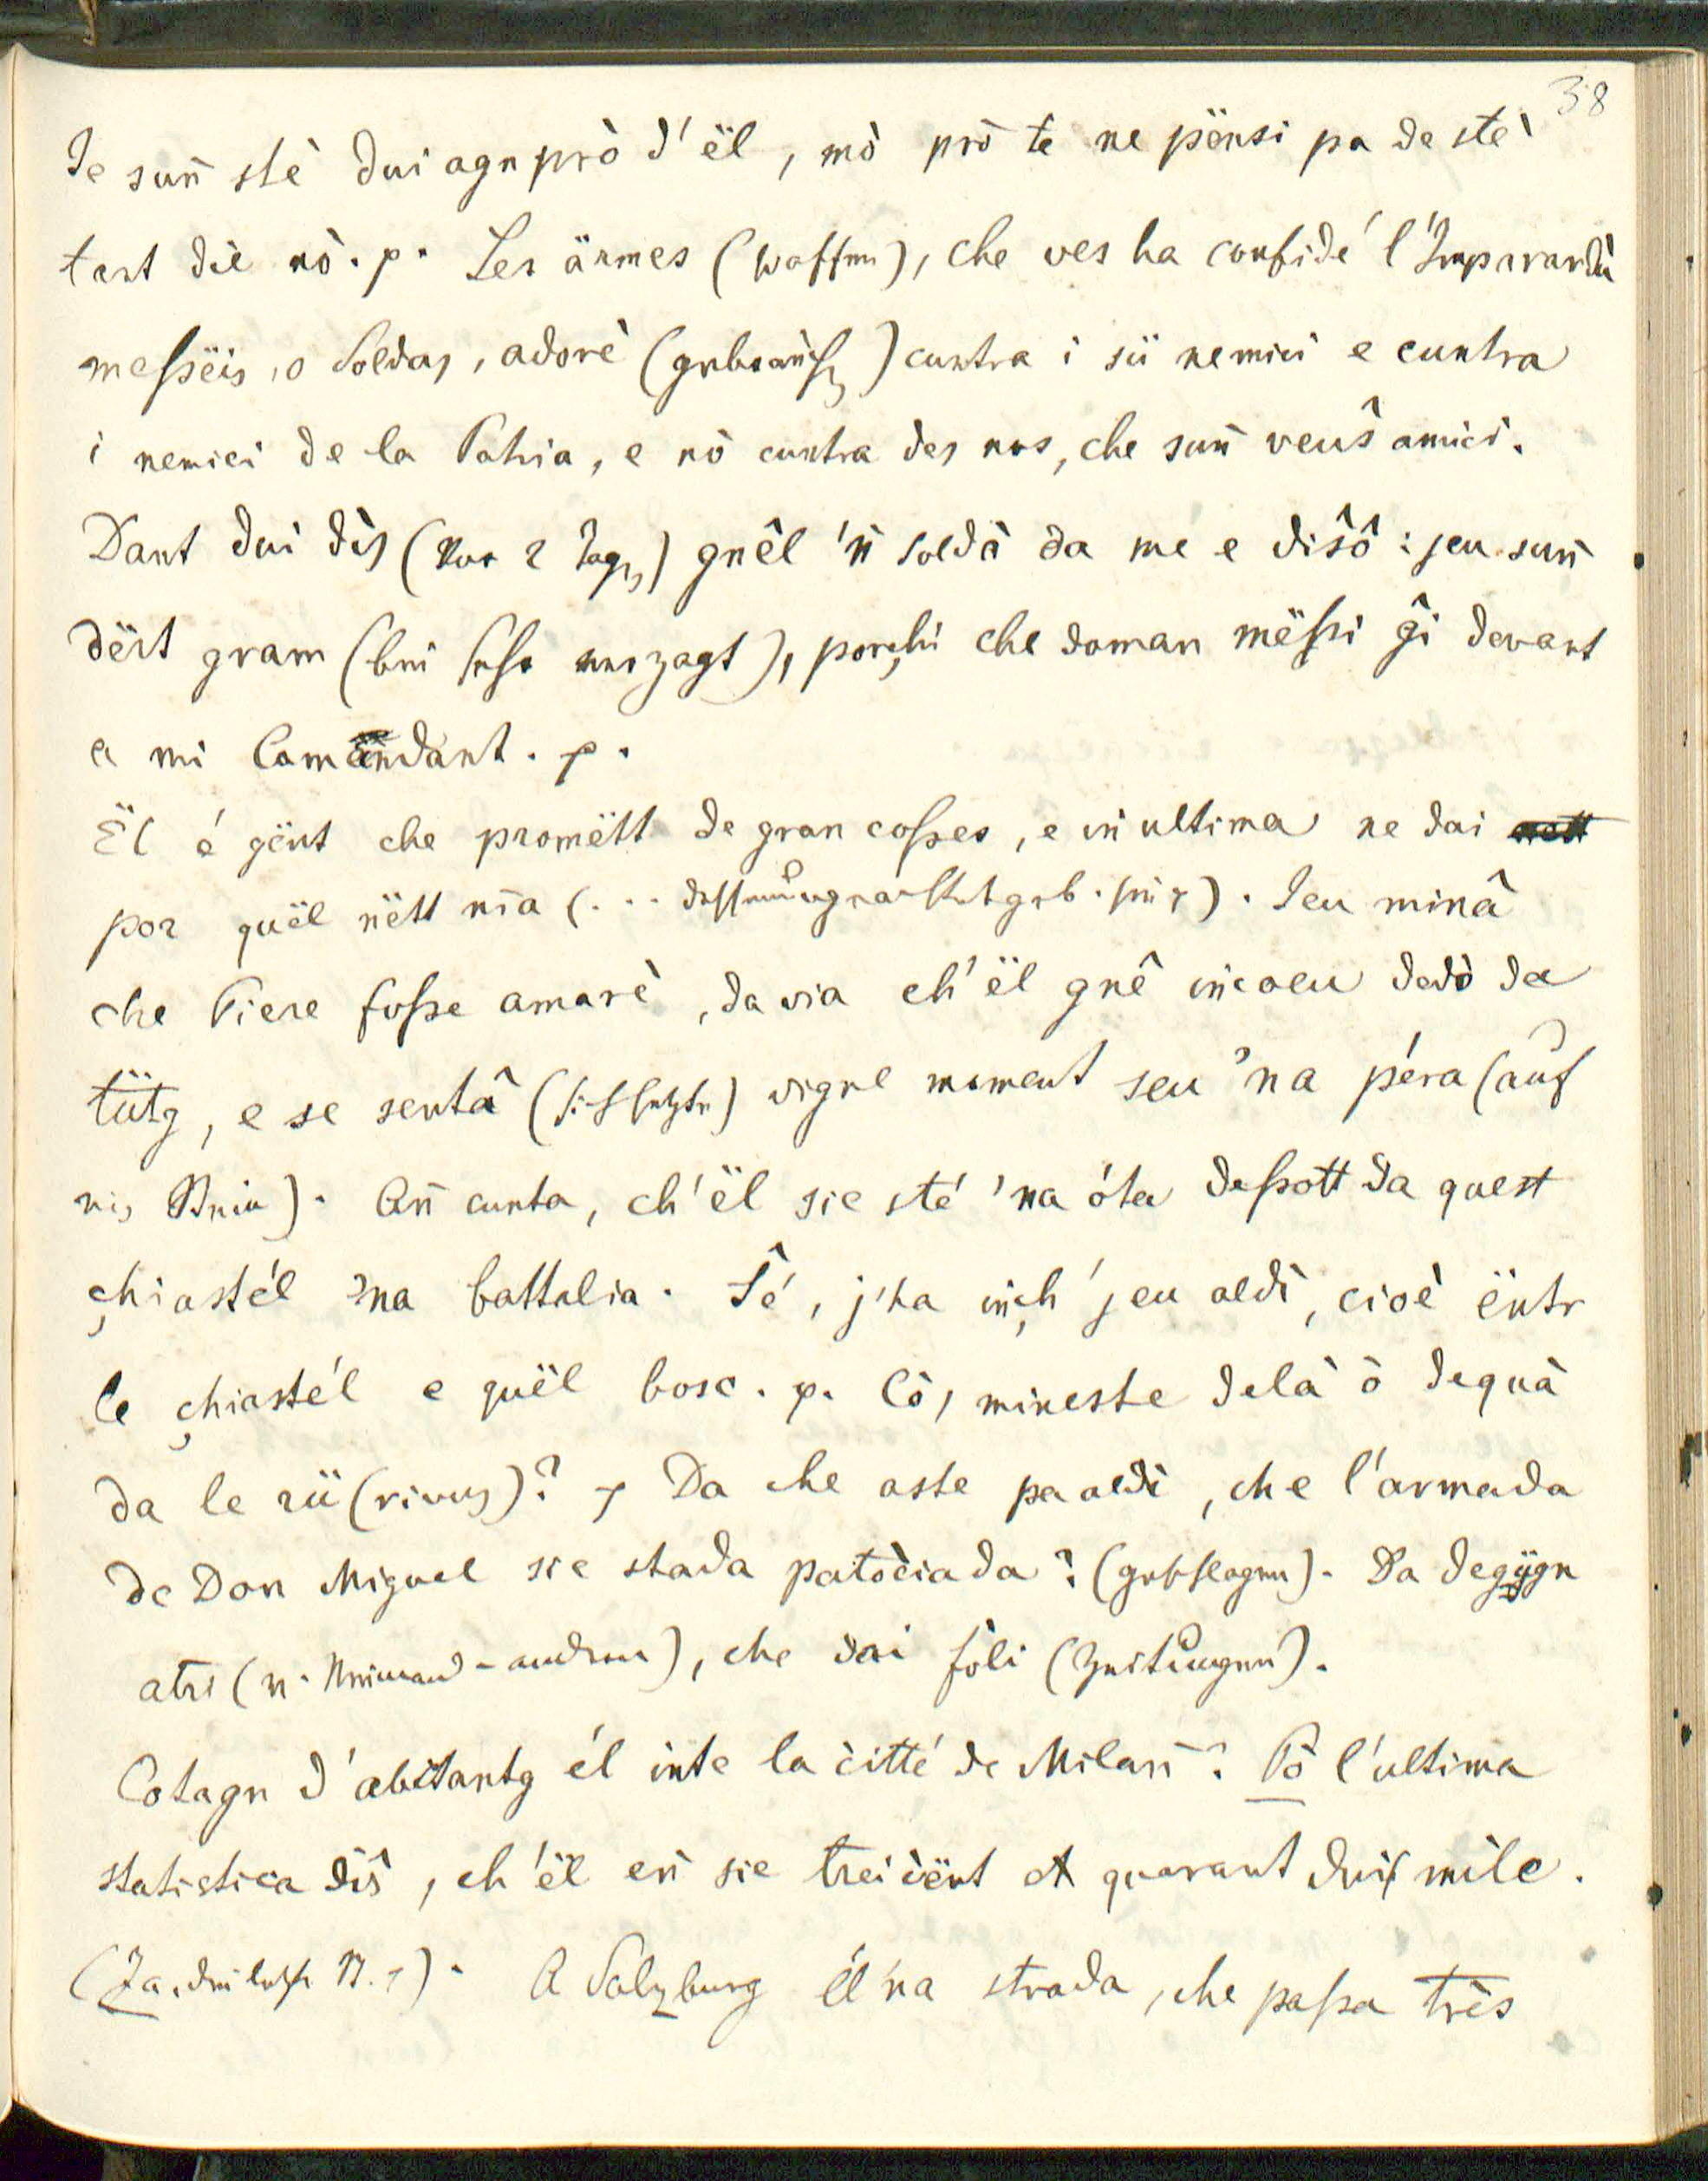 38
Ie suñ stè dui agn prò d'ël, mò prò te ne pënsi pa de stè
tant die nò. p. Les ärmes (Waffen), che ves ha confidé l'Imparardù
messëis, o Soldas, adorè (gebrauchen) cuntra i sü nemici e cuntra
i nemici de la Patria, e nò cuntra des nos, che suñ veus̑ amici.
Dant dui dis (vor 2 Tagen) gnêl 'ñ soldà da me e dis̑ô: jeu suñ
dërt gram (bin sehr verzagt), porçhi che doman mëssi ĝi devant
a mi Comandant. p.
Ël é gënt che promëtt de gran cosses, e in ultima ne dai
por quël nëtt nïa (... dessenungeachtet geb. sie). Jeu minâ
che Piere fosse amarè, davia ch'ël gnê incoeu dedò da
tütg, e se sentâ (sich setzte) vigne moment seu 'na péra (auf
ein Stein). Añ cunta, ch'ël sie sté 'na óta dessott da quest
çhiastél 'na battalia. S̑é, j'ha inçh' jeu aldì, cioè ëntr
le çhiastél e quël bosc. p. Cò, mineste delà ò dequà
da le rü (rivus)? Da che aste pa aldì, che l'armada
de Don Miguel sie stada patòciada? (geschlagen). Da degügn
atri (v. Niemand - andern), che dai fòli (Zeitungen).
Cotagn d'abitantg él inte la città de Milan? Pò l'ultima
statistica dis̑, ch'ël en sie treicënt quarant dui mile.
(Ja, die letzte). A Salzburg él 'na strada, che passa très